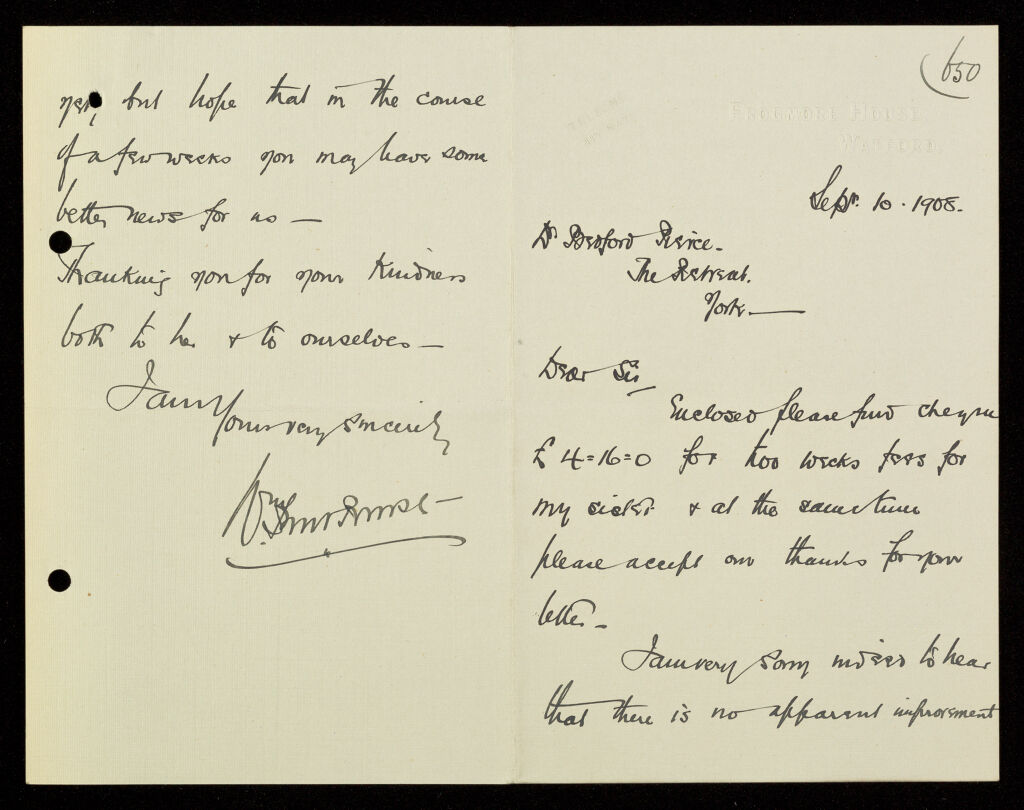 (650
FROGMORE HOUSE
WATFORD.
Sepr. 10. 1908.
Dr Bedford Pierce.
The Retreat.
York.—
Dear Sir
Enclosed please find cheque
£ 4=16=0 for two weeks fees for
my sister & at the same time
please accept our thanks for your
letter—
I am very sorry indeed to hear
that there is no apparent improvement
yet, but hope that in the course
of a few weeks you may have some
better news for us —
Thanking you for your kindness
both to her & to ourselves —
I am Yours very sincerely
Wm